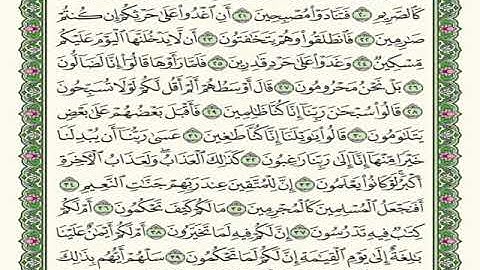 كَٱلصَّرِيمِ ۝٢٠ فَتَنَادَوْا۟ مُصْبِحِينَ ۝٢١ أَنِ ٱغْدُوا۟ عَلَىٰ حَرْثِكُمْ إِن كُنتُمْ
صَٰرِمِينَ ۝٢٢ فَٱنطَلَقُوا۟ وَهُمْ يَتَخَٰفَتُونَ ۝٢٣ أَن لَّا يَدْخُلَنَّهَا ٱلْيَوْمَ عَلَيْكُم
مِّسْكِينٌ ۝٢٤ وَغَدَوْا۟ عَلَىٰ حَرْدٍ قَٰدِرِينَ ۝٢٥ فَلَمَّا رَأَوْهَا قَالُوٓا۟ إِنَّا لَضَآلُّونَ
۝٢٦ بَلْ نَحْنُ مَحْرُومُونَ ۝٢٧ قَالَ أَوْسَطُهُمْ أَلَمْ أَقُل لَّكُمْ لَوْلَا تُسَبِّحُونَ
۝٢٨ قَالُوا۟ سُبْحَٰنَ رَبِّنَآ إِنَّا كُنَّا ظَٰلِمِينَ ۝٢٩ فَأَقْبَلَ بَعْضُهُمْ عَلَىٰ بَعْضٍ
يَتَلَٰوَمُونَ ۝٣٠ قَالُوا۟ يَٰوَيْلَنَآ إِنَّا كُنَّا طَٰغِينَ ۝٣١ عَسَىٰ رَبُّنَآ أَن يُبْدِلَنَا
خَيْرًا مِّنْهَآ إِنَّآ إِلَىٰ رَبِّنَا رَٰغِبُونَ ۝٣٢ كَذَٰلِكَ ٱلْعَذَابُ ۖ وَلَعَذَابُ ٱلْءَاخِرَةِ
أَكْبَرُ ۚ لَوْ كَانُوا۟ يَعْلَمُونَ ۝٣٣ إِنَّ لِلْمُتَّقِينَ عِندَ رَبِّهِمْ جَنَّٰتِ ٱلنَّعِيمِ ۝٣٤
أَفَنَجْعَلُ ٱلْمُسْلِمِينَ كَٱلْمُجْرِمِينَ ۝٣٥ مَا لَكُمْ كَيْفَ تَحْكُمُونَ ۝٣٦ أَمْ لَكُمْ
كِتَٰبٌ فِيهِ تَدْرُسُونَ ۝٣٧ إِنَّ لَكُمْ فِيهِ لَمَا تَخَيَّرُونَ ۝٣٨ أَمْ لَكُمْ أَيْمَٰنٌ عَلَيْنَا
بَٰلِغَةٌ إِلَىٰ يَوْمِ ٱلْقِيَٰمَةِ ۙ إِنَّ لَكُمْ لَمَا تَحْكُمُونَ ۝٣٩ سَلْهُمْ أَيُّهُم بِذَٰلِكَ